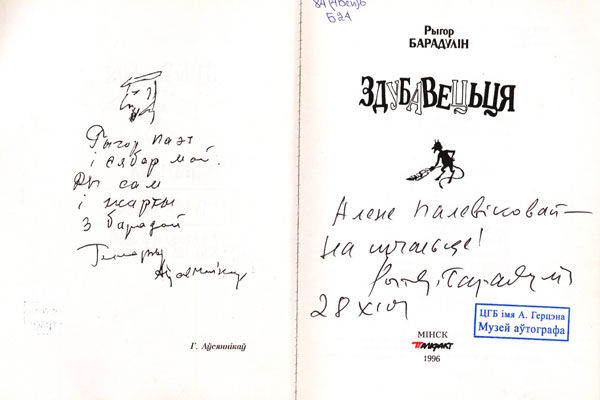 Рыгор паэт
і сябар мой.
Ды сам
і жарты
з барадой
Г. Аўсяннікаў
84(4Беи)6
Б24
Рыгор
БАРАДУЛІН
ЗДУБАВЕЦЬЦЯ
Алене Палевіковай –
на шчасьце!
Рыгор Барадулін
28 XI 01
МІНСК
1996
ЦГБ імя А. Герцэна
Музей аўтографа